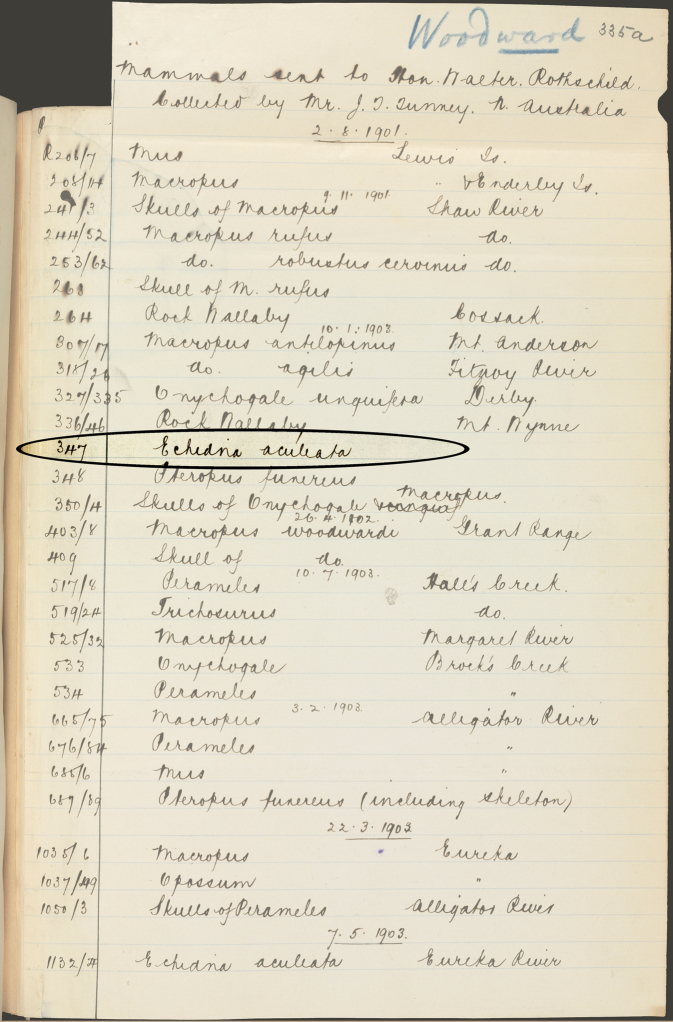 Woodward 335a
Mammals sent to Hon. Walter. Rothschild.
Collected by Mr. J. T. Tunney. N. Australia
2.8.1901.
R206/7 Mus Lewis Is.
208/14 Macropus " & Enderby Is.
9.11.1901
241/3 Skulls of Macropus Shaw River
244/52 Macropus rufus do.
253/62 do. robustus cervinus do.
263 Skull of M. rufus
264 Rock Wallaby Cossack.
10.1.1902.
307/17 Macropus antilopinus Mt. Anderson
318/26 do. agilis Fitzroy River
327/335 Onychogale unguifera Derby.
336/46 Rock Wallaby Mt. Wynne
347 Echidna aculeata
348 Pteropus funereus
350/4 Skulls of Onychogale Macropus.
26.4.1902.
403/8 Macropus woodwardi Grant Range
409 Skull of do.
10.7.1902.
517/8 Perameles Hall's Creek.
519/24 Trichosurus do.
525/32 Macropus Margaret River
533 Onychogale Brock's Creek
534 Perameles "
3.2.1903
665/75 Macropus Alligator River
676/84 Perameles "
685/6 Mus "
687/89 Pteropus funereus (including skeleton)
22.3.1903
1035/6 Macropus Eureka
1037/49 Opossum "
1050/3 Skulls of Perameles Alligator River
7.5.1903.
1132/4 Echidna aculeata Eureka River